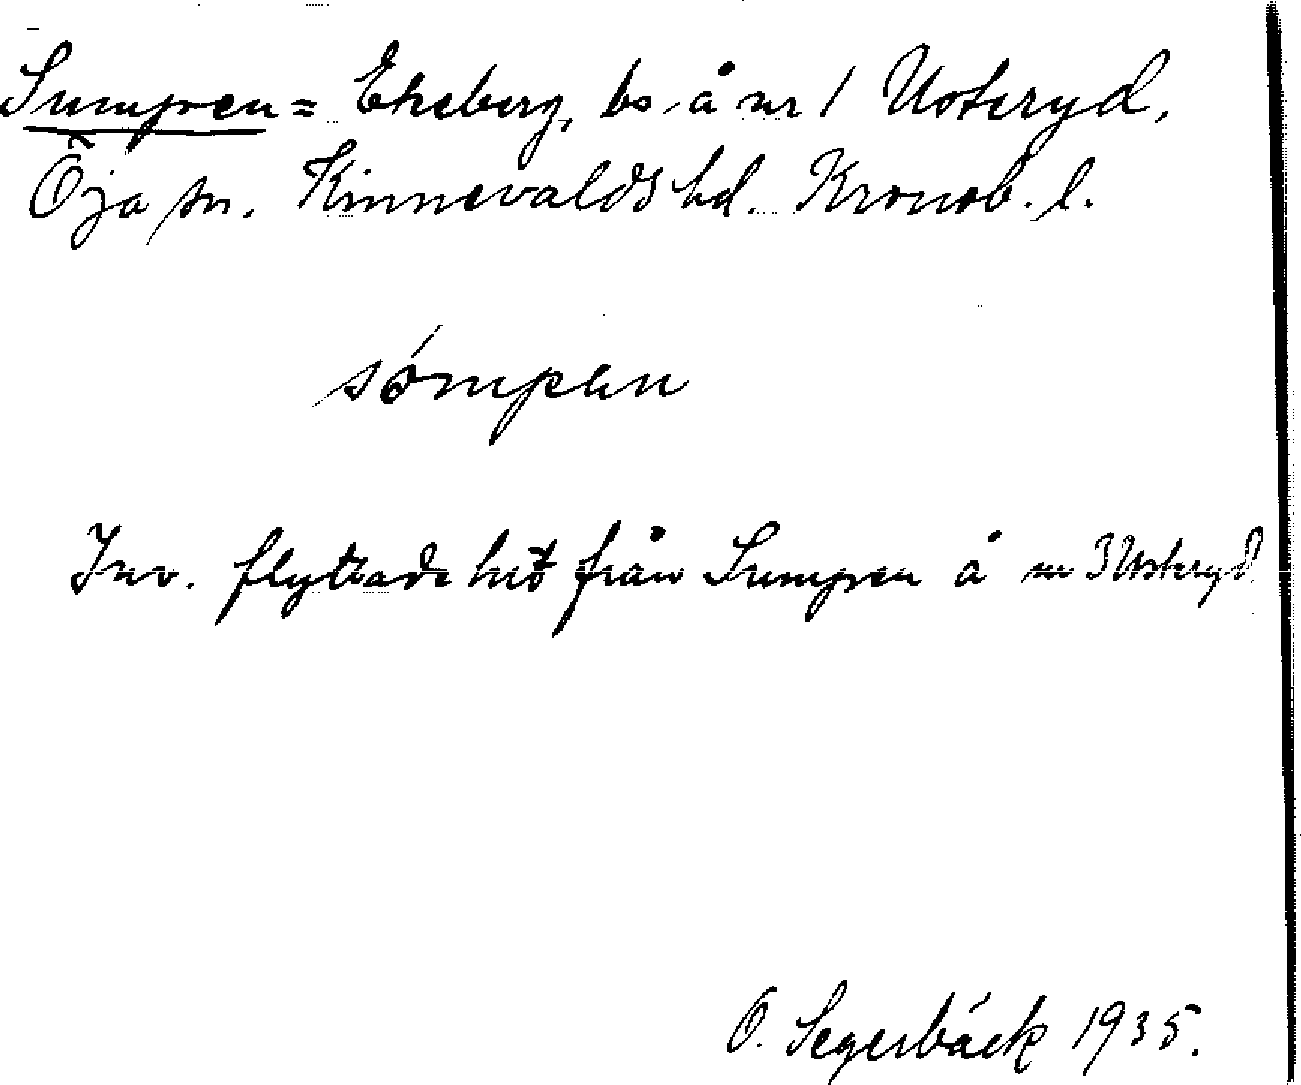 Sumpen = Ekeberg, bs å nr 1 Usteryd,
Öja sn. Kinnevalds hd. Kronob. l.
sómpen
Inv. flyttade hit från Sumpen å nr 3 Usteryd.
O. Segerbäck 1935.